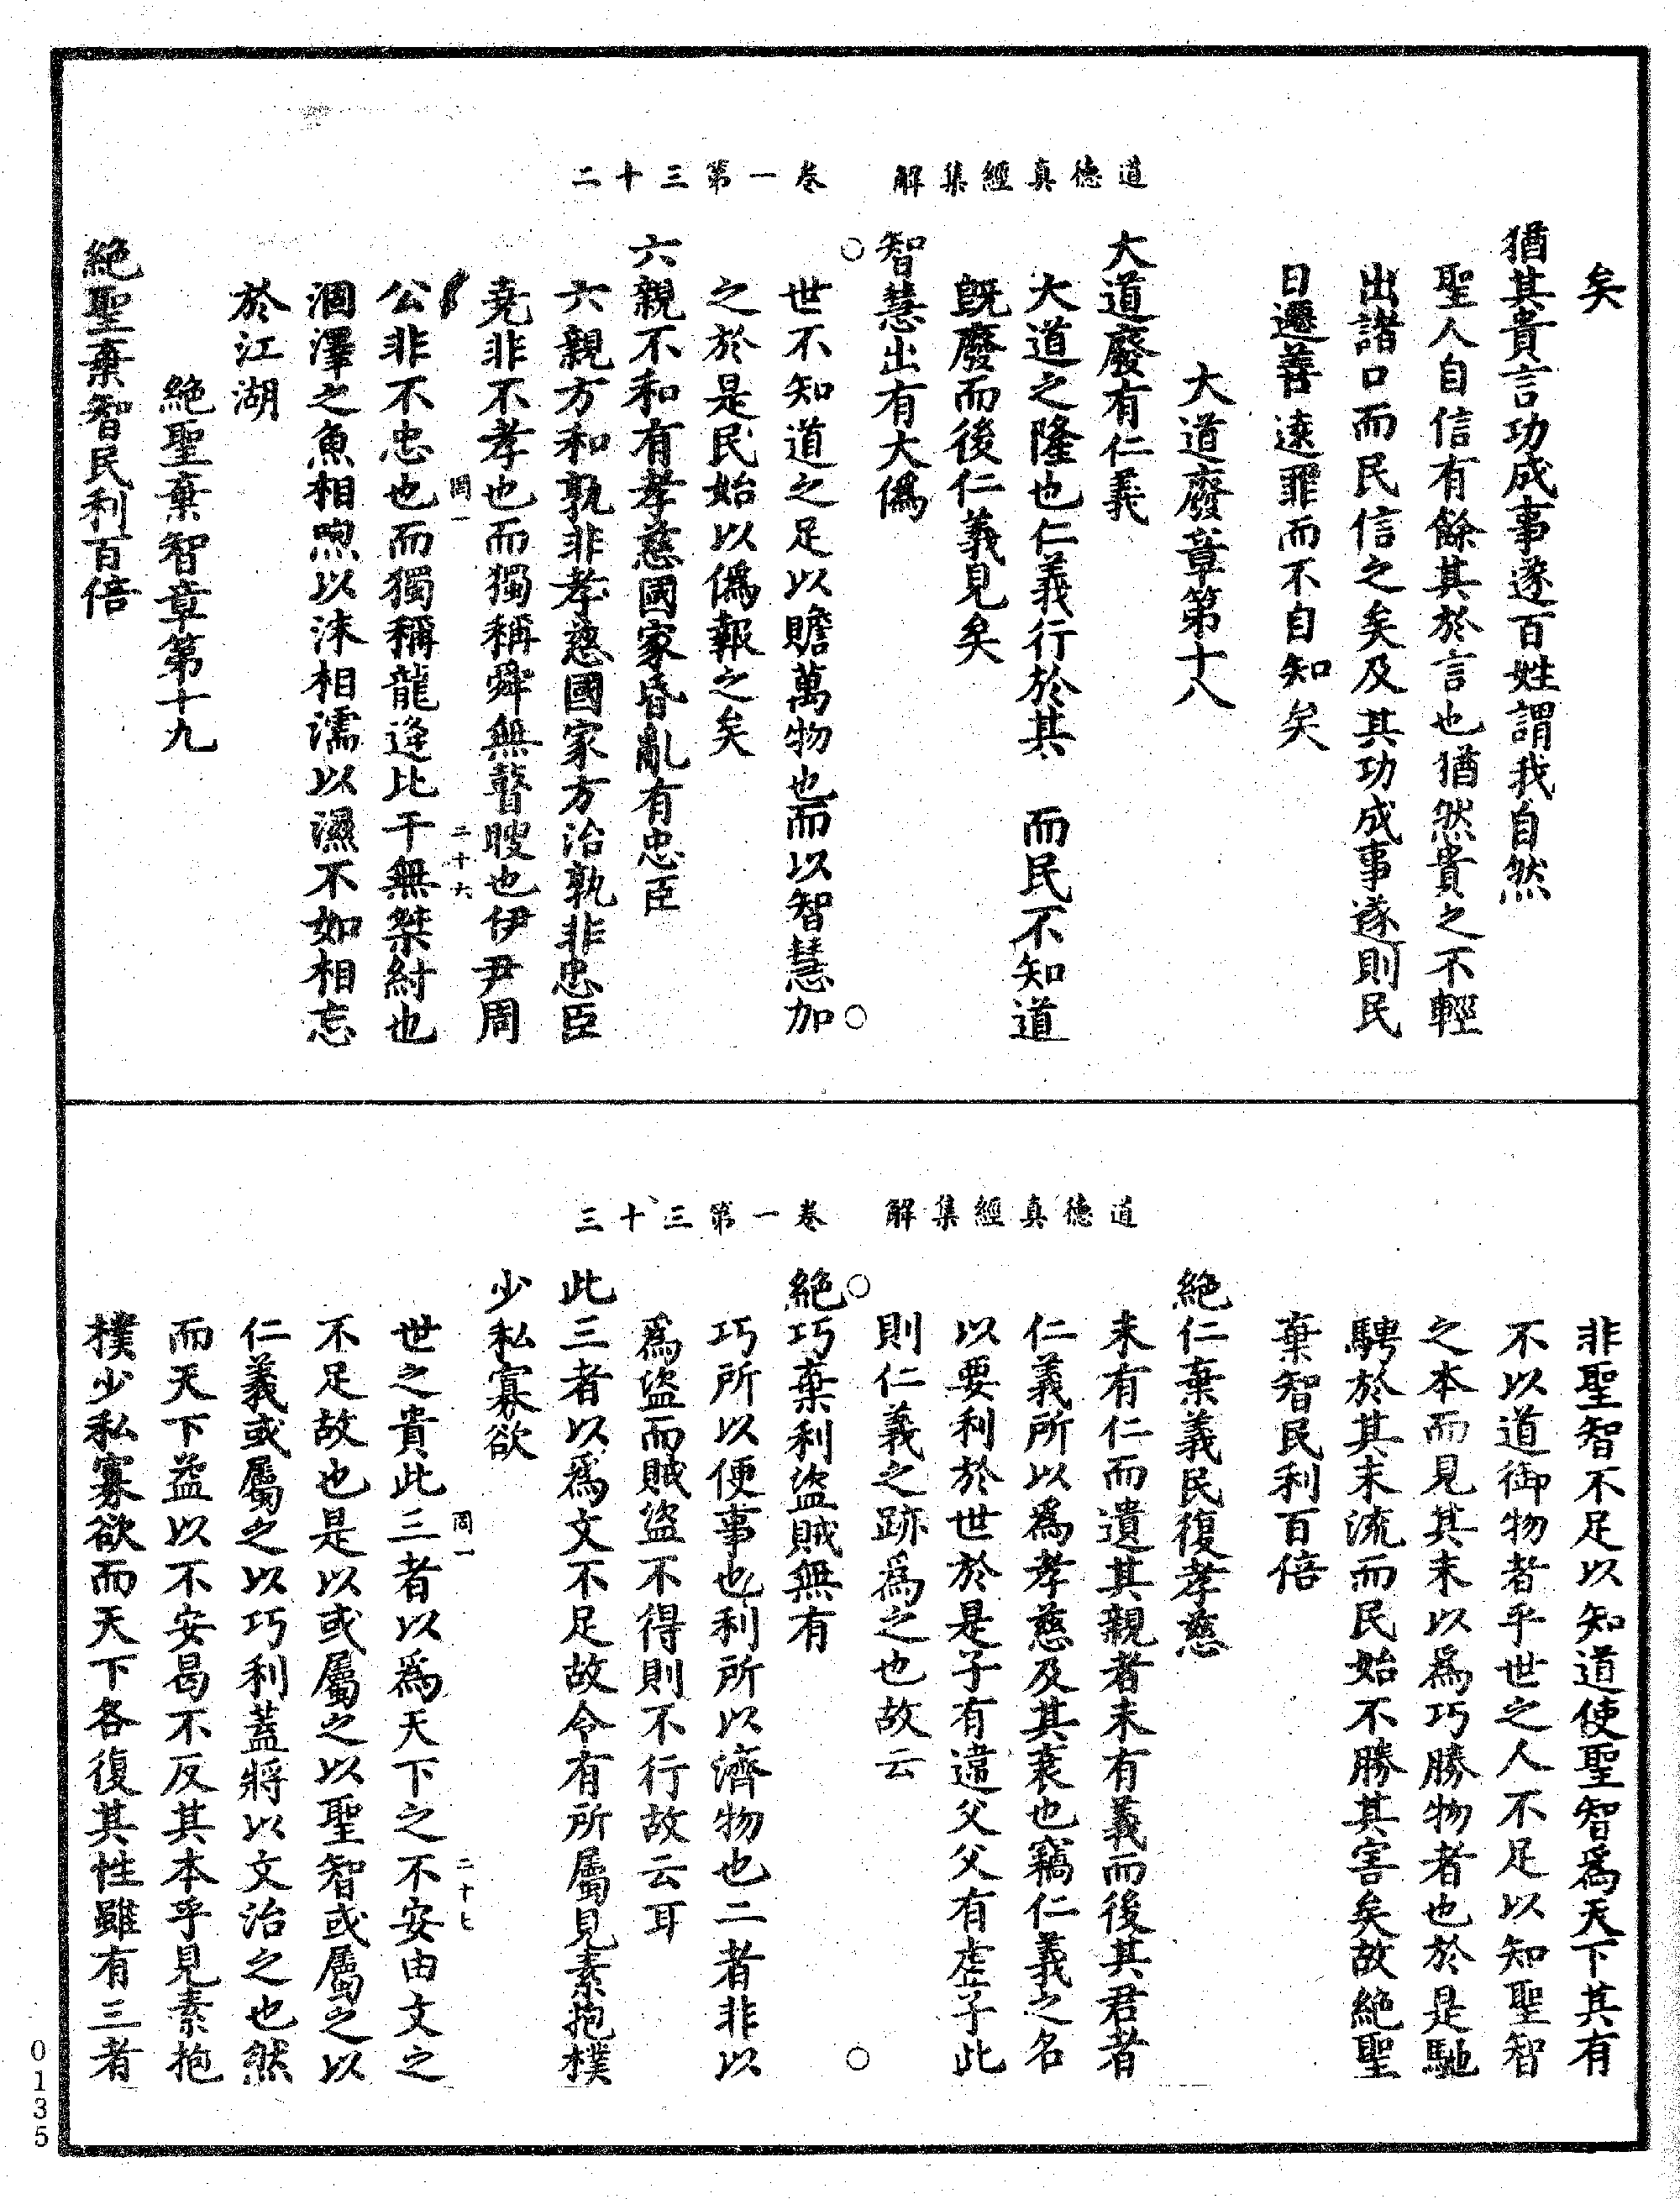 道德真經集解　卷一第三十二
矣
猶其貴言功成事遂百姓謂我自然
聖人自信有餘其於言也猶然貴之不輕
出諸口而民信之矣及其功成事遂則民
日遷善遠罪而不自知矣
大道廢章第十八
大道廢有仁義
大道之隆也仁義行於其　而民不知道
既廢而後仁義見矣
智慧出有大僞
世不知道之足以贍萬物也而以智慧加
之於是民始以僞報之矣
六親不和有孝慈國家昏亂有忠臣
六親方和孰非孝慈國家方治孰非忠臣
堯非不孝也而獨稱舜無瞽瞍也伊尹周
罔一　二十六
公非不忠也而獨稱龍逄比干無桀紂也
涸澤之魚相喣以沫相濡以濕不如相忘
於江湖
絶聖棄智章第十九
絶聖棄智民利百倍
道德真經集解　卷一第三十三
非聖智不足以知道使聖智爲天下其有
不以道御物者乎世之人不足以知聖智
之本而見其末以爲巧勝物者也於是馳
騁於其末流而民始不勝其害矣故絶聖
棄智民利百倍
絶仁棄義民復孝慈
未有仁而遺其親者未有義而後其君者
仁義所以爲孝慈及其衰也竊仁義之名
以要利於世於是子有違父父有虐子此
則仁義之跡爲之也故云
絶巧棄利盜賊無有
巧所以便事也利所以濟物也二者非以
爲盜而賊盜不得則不行故云耳
此三者以爲文不足故令有所屬見素抱樸
少私寡欲
罔一　二十七
世之貴此三者以爲天下之不安由文之
不足故也是以或屬之以聖智或屬之以
仁義或屬之以巧利蓋將以文治之也然
而天下益以不安曷不反其本乎見素抱
樸少私寡欲而天下各復其性雖有三者
0135